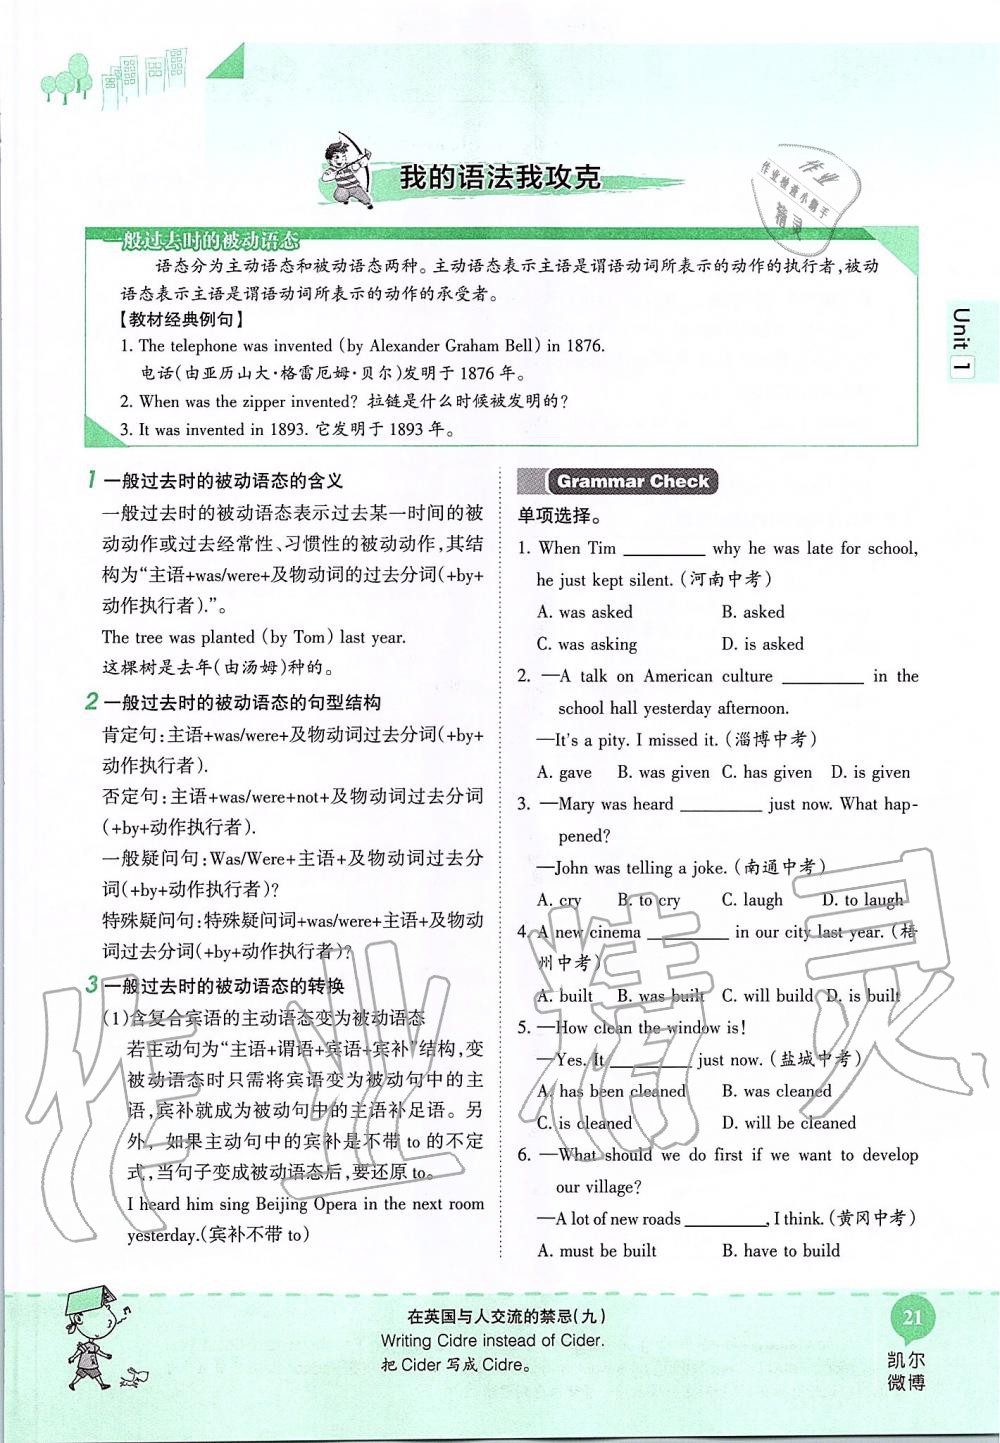 我的语法我攻克
作业
作业检查小助手
精灵
一般过去时的被动语态
语态分为主动语态和被动语态两种。主动语态表示主语是谓语动词所表示的动作的执行者,被动
语态表示主语是谓语动词所表示的动作的承受者。
【教材经典例句】
1. The telephone was invented (by Alexander Graham Bell) in 1876.
电话(由亚历山大·格雷厄姆·贝尔)发明于1876年。
2. When was the zipper invented? 拉链是什么时候被发明的?
3. It was invented in 1893. 它发明于1893年。
Unit 1
1 一般过去时的被动语态的含义
一般过去时的被动语态表示过去某一时间的被
动动作或过去经常性、习惯性的被动动作,其结
构为“主语+was/were+及物动词的过去分词(+by+
动作执行者).”。
The tree was planted (by Tom) last year.
这棵树是去年(由汤姆)种的。
2 一般过去时的被动语态的句型结构
肯定句:主语+was/were+及物动词过去分词(+by+
动作执行者).
否定句:主语+was/were+not+及物动词过去分词
(+by+动作执行者).
一般疑问句:Was/Were+主语+及物动词过去分
词(+by+动作执行者)?
特殊疑问句:特殊疑问词+was/were+主语+及物动
词过去分词(+by+动作执行者)?
3 一般过去时的被动语态的转换
(1)含复合宾语的主动语态变为被动语态
若主动句为“主语+谓语+宾语+宾补”结构,变
被动语态时只需将宾语变为被动句中的主
语,宾补就成为被动句中的主语补足语。另
外, 如果主动句中的宾补是不带to的不定
式,,当句子变成被动语态后,要还原to。
I heard him sing Beijing Opera in the next room
yesterday.(宾补不带to)
Grammar Check
单项选择。
1. When Tim ________ why he was late for school,
he just kept silent. (河南中考)
A. was asked B. asked
C. was asking D. is asked
2. —A talk on American culture ________ in the
school hall yesterday afternoon.
—It's a pity. I missed it. (淄博中考)
A. gave B. was given C. has given D. is given
3. —Mary was heard ________ just now. What hap-
pened?
—John was telling a joke. (南通中考)
A. cry B. to cry C. laugh D. to laugh
4. A new cinema ________ in our city last year. (梧
州中考)
A. built B. was built C. will build D. is built
5. —How clean the window is!
—Yes. It ________ just now. (盐城中考)
A. has been cleaned B. was cleaned
C. is cleaned D. will be cleaned
6. —What should we do first if we want to develop
our village?
—A lot of new roads ________, I think. (黄冈中考)
A. must be built B. have to build
作业精灵
在英国与人交流的禁忌(九)
Writing Cidre instead of Cider.
把Cider写成Cidre。
21
凯尔
微博